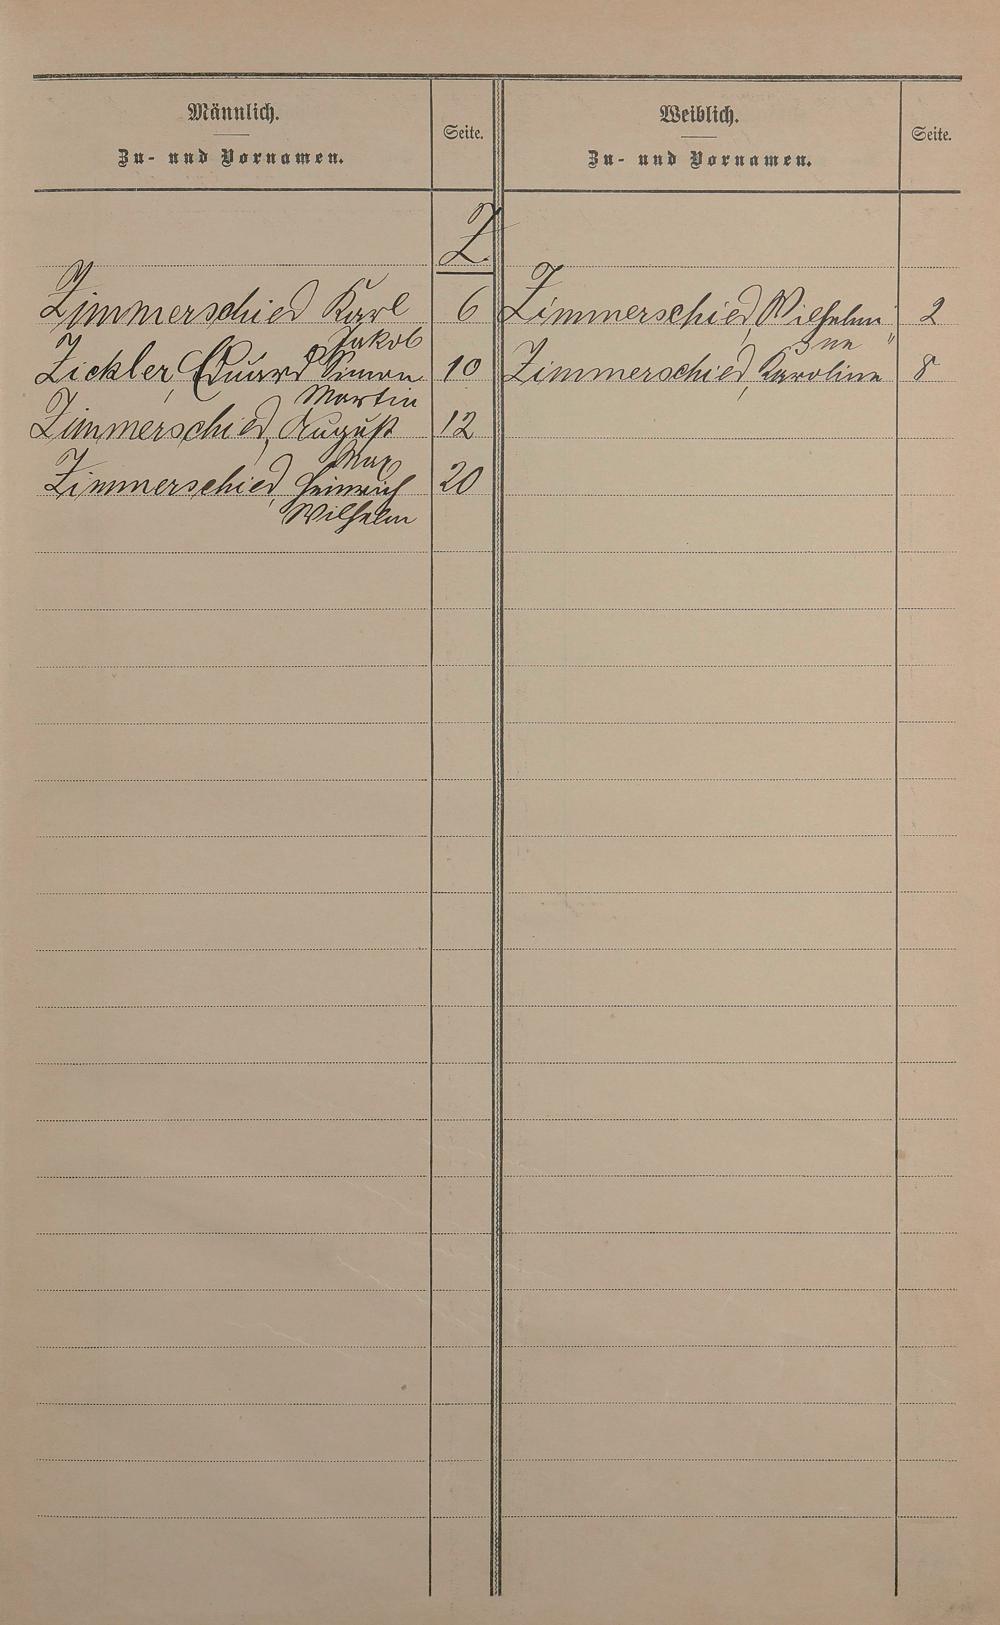 Männlich.
Zu- und Vornamen.
Seite.
Weiblich.
Zu- und Vornamen.
Seite.
Z.
Zimmerschied Karl 6
Jakob
Zickler, Eduard Simon 10
Martin
Zimmerschied, August 12
Max
Zimmerschied, Heinrich 20
Wilhelm
Zimmerschied, Wilhelmi 2
ne
Zimmerschied, Karoline 8